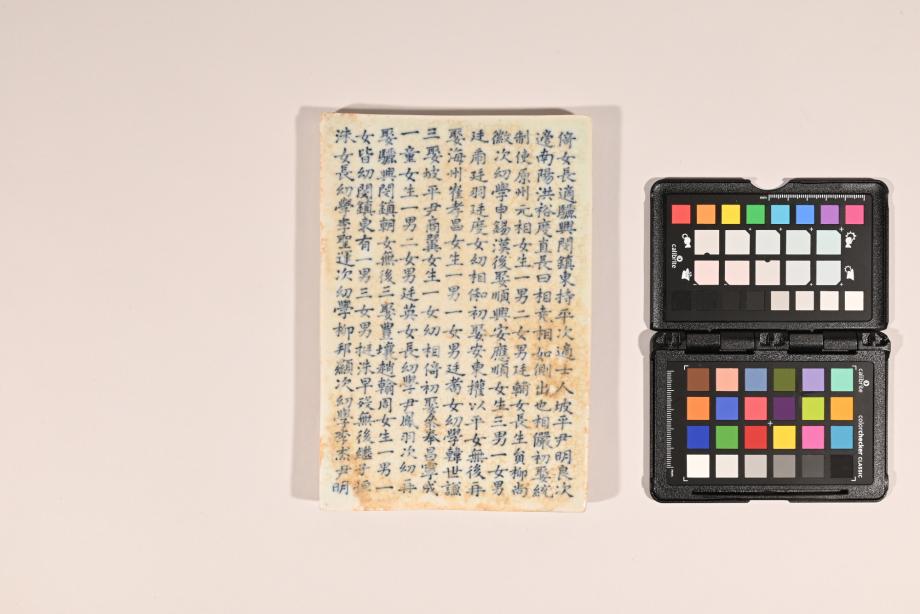 倚女長適驪興閔鎮東持平次適士人坡平尹明良次
適南陽洪裕度直長曰相相如側出也相儼初娶統
制使原州元相女生一男二女男廷輔女長生負柳尚
徽次幼學申錫漢後娶順興安應順女生三男一女男
廷爾廷羽廷度女幼相初娶安東權以平女無後再
娶海州崔孝昌女生一男一女男廷喬女幼學韓世謐
三娶坡平尹商翼女生一女幼相倚初娶參奉昌寧成
一童女生一男二女男廷英女長幼學尹鳳羽次幼再
娶驪興閔鎮朝女無後三娶豊壤趙翰周女生一男一
女皆幼閔鎮東有一男三女男挺洙早歿無後繼子
洙女長幼學李聖運次幼學柳邦顯次幼學李杰尹明
calibrite
calibrite
colorchecker CLASSIC
mm